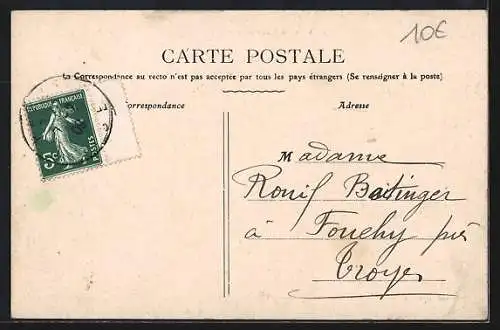 10€
CARTE POSTALE
La Correspondance au recto n'est pas acceptée par tous les pays étrangers (Se renseigner à la poste)
Correspondance
Adresse
REPUBLIQUE FRANÇAISE
5c
POSTES
Madame
à Fouchy près
Troyes